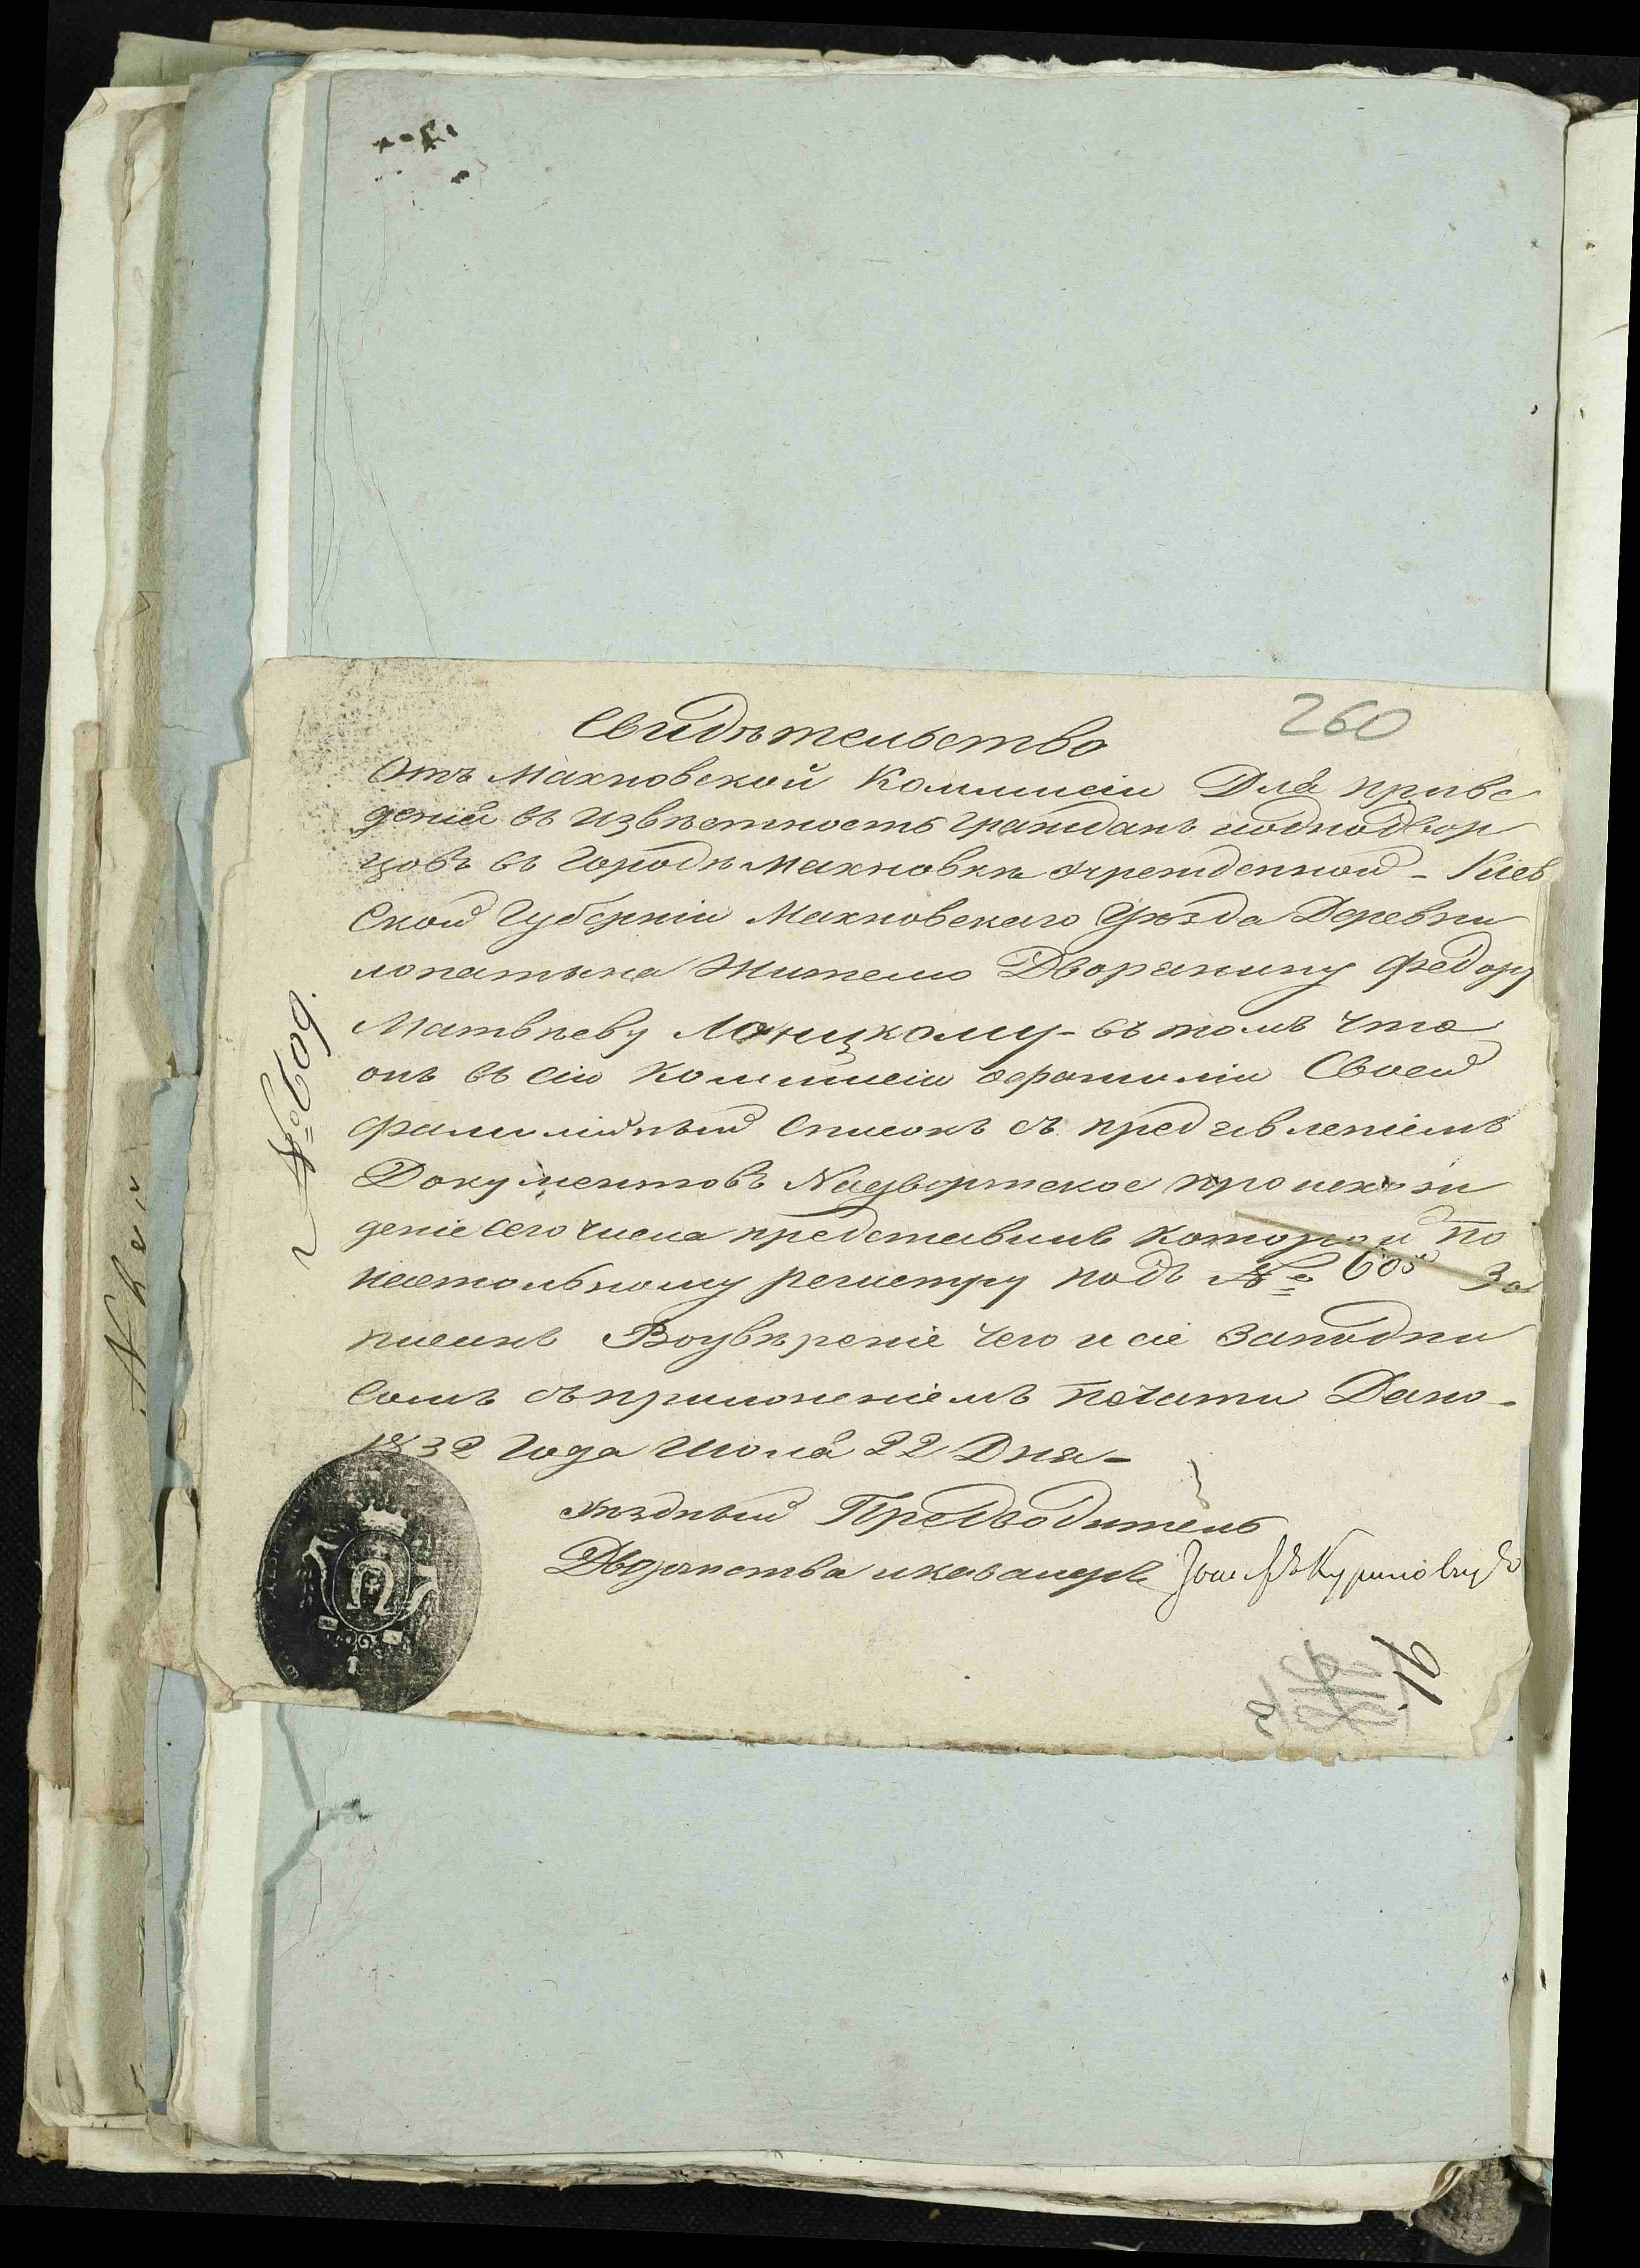 260
Свидѣтельство
Отъ Махновской Коммисіи Для приве
денія въ Извѣстность Гражданъ иоднодвор
цовъ въ Городѣ Махновкѣ Учрежденной - Кіев
Ской Губерніи Махновскаго Уѣзда Деревни
лопатына Жителю Дворянину Федору
Матвѣеву Лоницкому - въ томъ что
онъ въ сію Коммисію офамиліи Своей
фамилійный Списокъ съ предъявленіемъ
Документовъ Надворянское происхож
деніе сего числа представилъ который по
настольному регистру подъ № 605 За
писанъ Воувѣреніе чего и сіе Заподпи
Сомъ съприложеніемъ печати Дано -
1832 Года Июля 22 Дня -
Уѣздный Предводитель
Дворянства икавалеръ
№ 609.
16